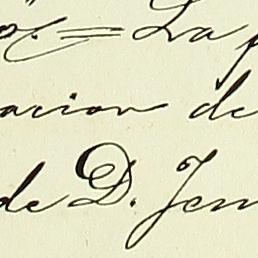 = La
acion de
de D. Jen